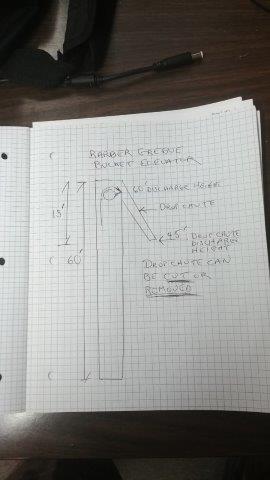 BARBER GREENE
BUCKET ELEVATOR
60' DISCHARGE HEIGHT
15'
DROP CHUTE
60'
45' DROP CHUTE
DISCHARGE
HEIGHT
DROP CHUTE CAN
BE CUT OR
REMOVED